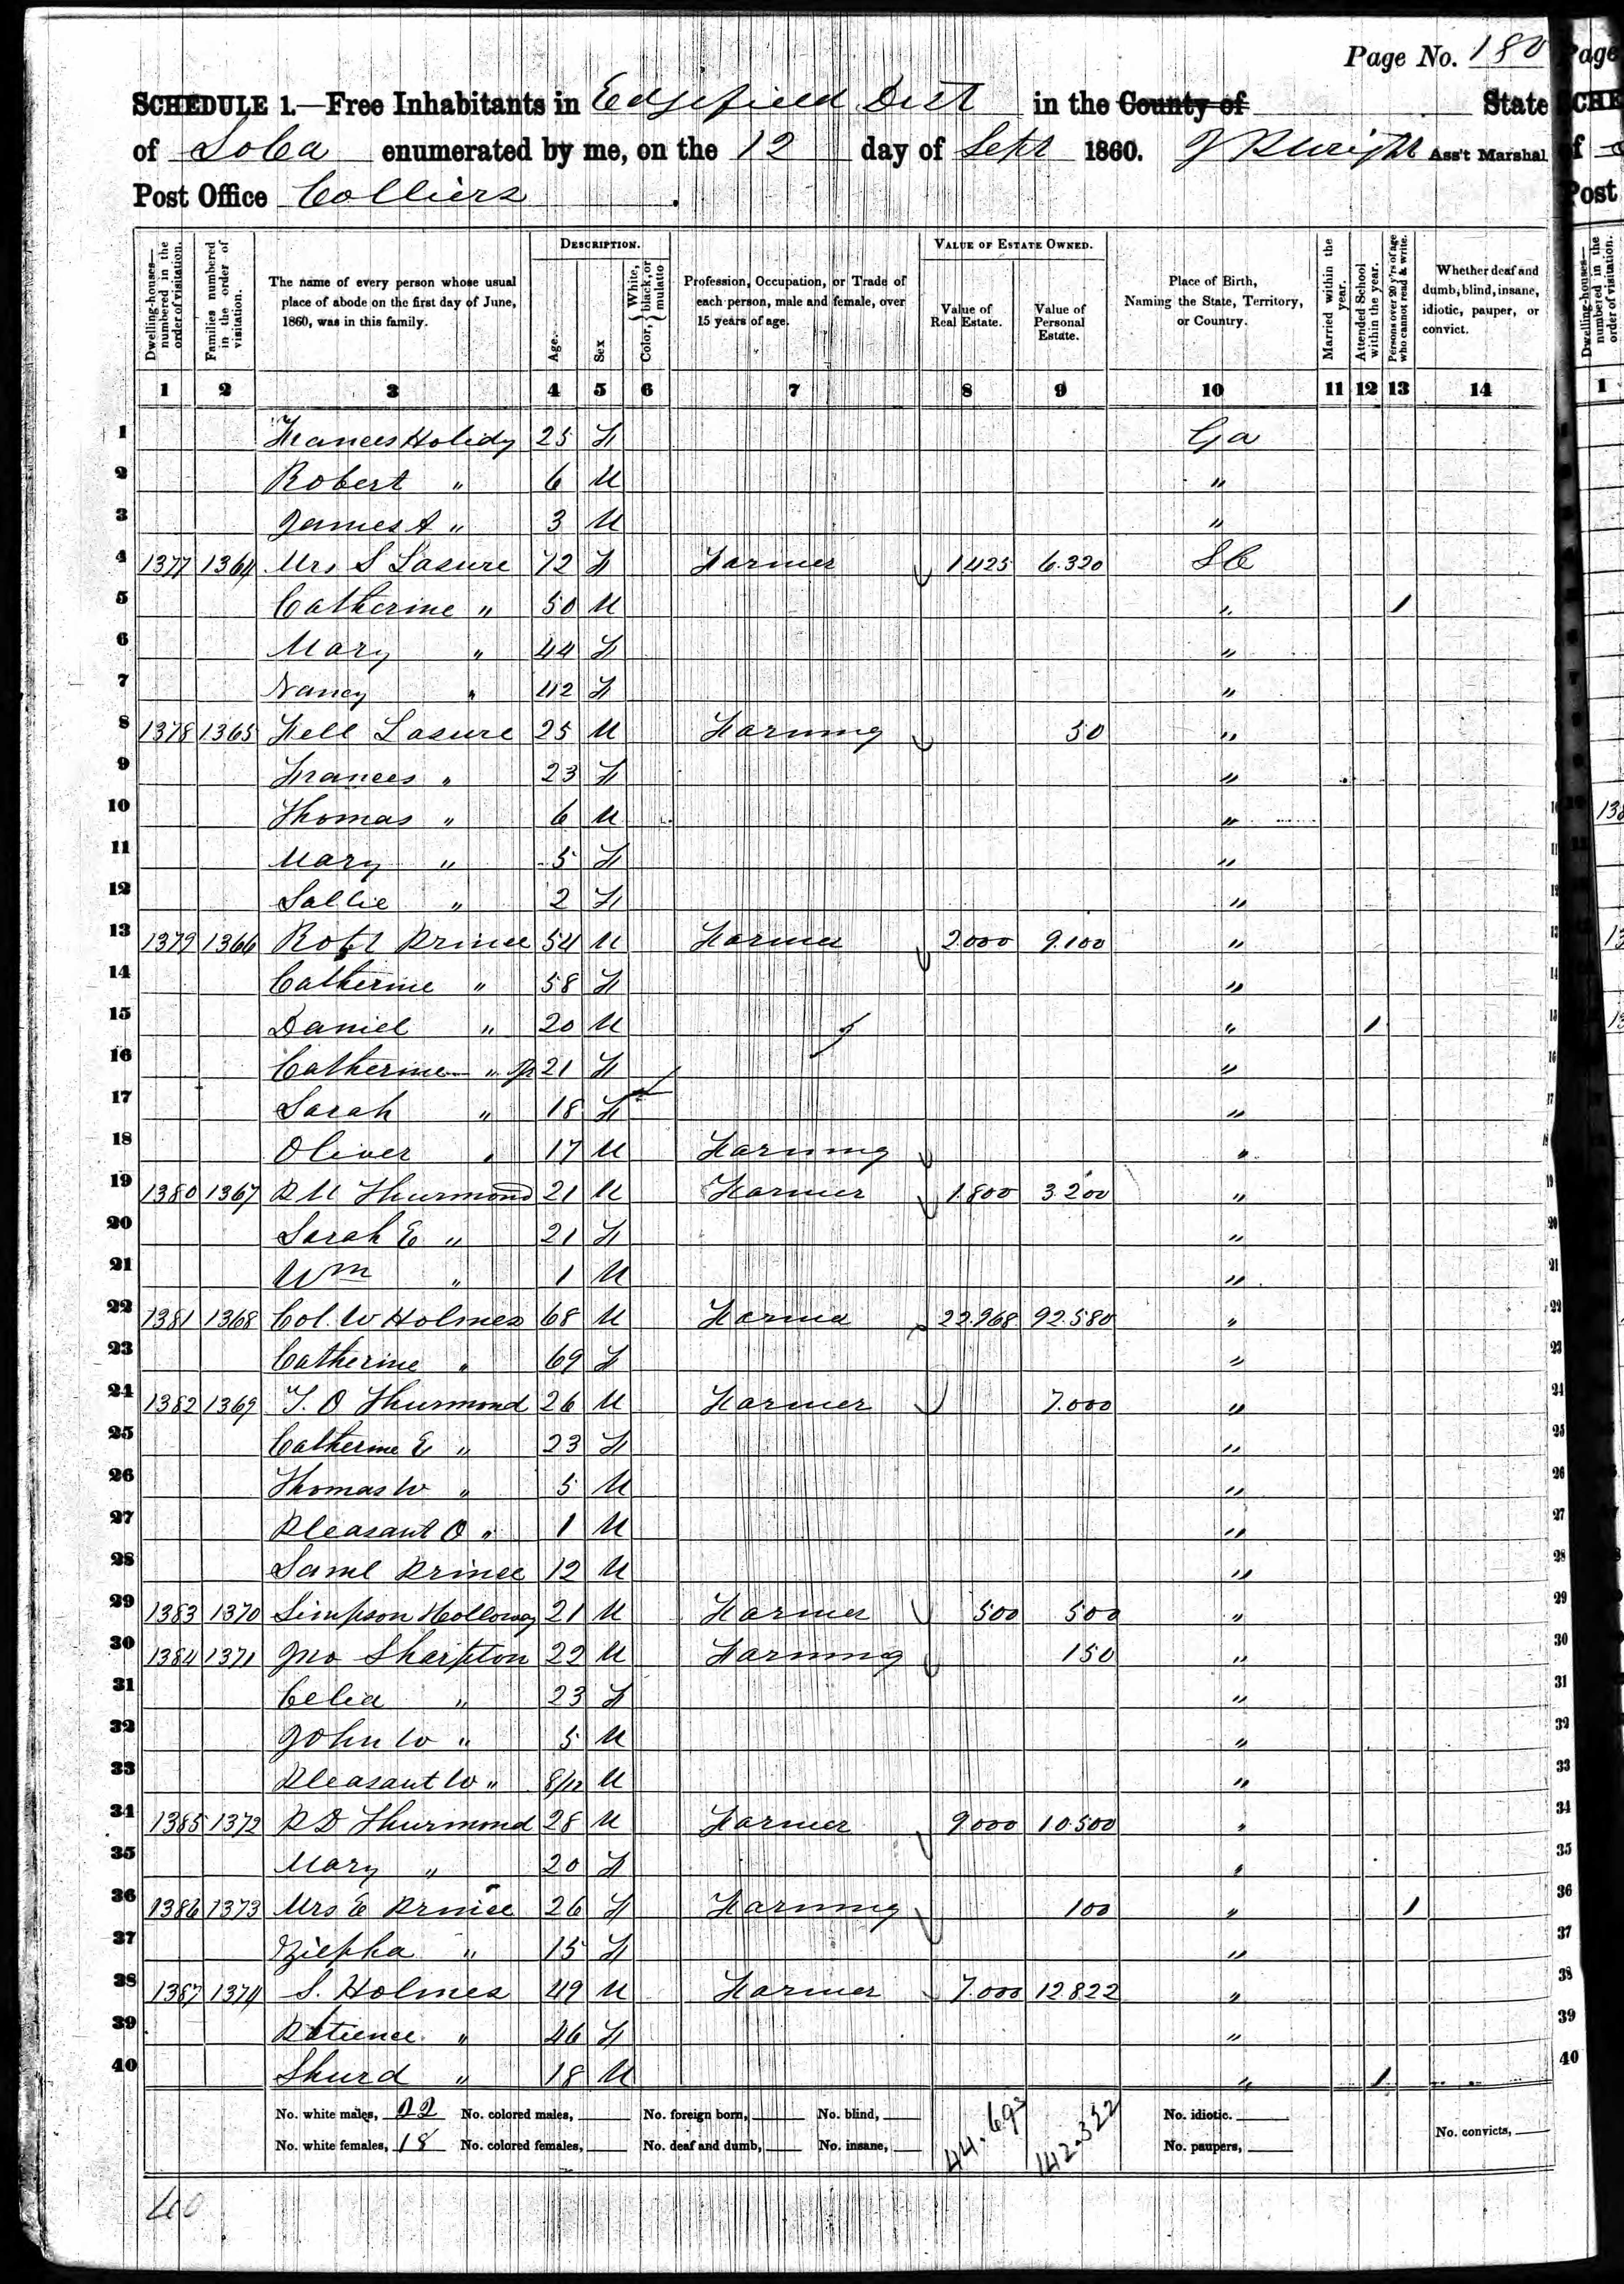 Page No. 180
SCHEDULE 1.—Free Inhabitants in Edgefield Dist in the County of State
of So Ca enumerated by me, on the 12 day of Sept 1860. Ass't Marshal
Post Office Colliers.
Dwelling-houses—numbered in the order of visitation. Families numbered in the order of visitation. The name of every person whose usual place of abode on the first day of June, 1860, was in this family. DESCRIPTION. Age. Sex Color, { White, black, or mulatto Profession, Occupation, or Trade of each person, male and female, over 15 years of age. VALUE OF ESTATE OWNED. Value of Real Estate. Value of Personal Estate. Place of Birth, Naming the State, Territory, or Country. Married within the year. Attended School within the year. Persons over 20 y'rs of age who cannot read & write. Whether deaf and dumb, blind, insane, idiotic, pauper, or convict.
1 2 3 4 5 6 7 8 9 10 11 12 13 14
1 Frances Holidy 25 F Ga
2 Robert " 6 M "
3 James A " 3 M "
4 1377 1364 Mrs S Lasure 72 F Farmer 1425 6.320 SC
5 Catherine " 50 M " /
6 Mary " 44 F "
7 Nancy " 42 F "
8 1378 1365 Fell Lasure 25 M Farming 50 "
9 Frances " 23 F "
10 Thomas " 6 M "
11 Mary " 5 F "
12 Sallie " 2 F "
13 1379 1366 Robt Prince 54 M Farmer 2.000 9.100 "
14 Catherine " 58 F "
15 Daniel " 20 M " /
16 Catherine " Jr 21 F "
17 Sarah " 18 F "
18 Oliver " 17 M Farming "
19 1380 1367 P M Thurmond 21 M Farmer 1.800 3.200 "
20 Sarah E " 21 F "
21 Wm " 1 M "
22 1381 1368 Col. W Holmes 68 M Farmer 22.968 92.580 "
23 Catherine " 69 F "
24 1382 1369 T. O Thurmond 26 M Farmer 7.000 "
25 Catherine E " 23 F "
26 Thomas W " 5 M "
27 Pleasant O " 1 M "
28 Saml Prince 12 M "
29 1383 1370 Simpson Holloway 21 M Farmer 500 500 "
30 1384 1371 Jno Sharpton 22 M Farming 150 "
31 Celia " 23 F "
32 John W " 5 M "
33 Pleasant W " 8/12 M "
34 1385 1372 P D Thurmond 28 M Farmer 9000 10.500 "
35 Mary " 20 F "
36 1386 1373 Mrs E Prince 26 F Farming 100 " /
37 Zilpha " 15 F "
38 1387 1374 S. Holmes 49 M Farmer 7.000 12822 "
39 Patience " 46 F "
40 Shurd " 18 M " /
No. white males, 22 No. colored males, No. foreign born, No. blind, 44.693 142.322 No. idiotic.
No. white females, 18 No. colored females, No. deaf and dumb, No. insane, No. paupers, No. convicts,
40